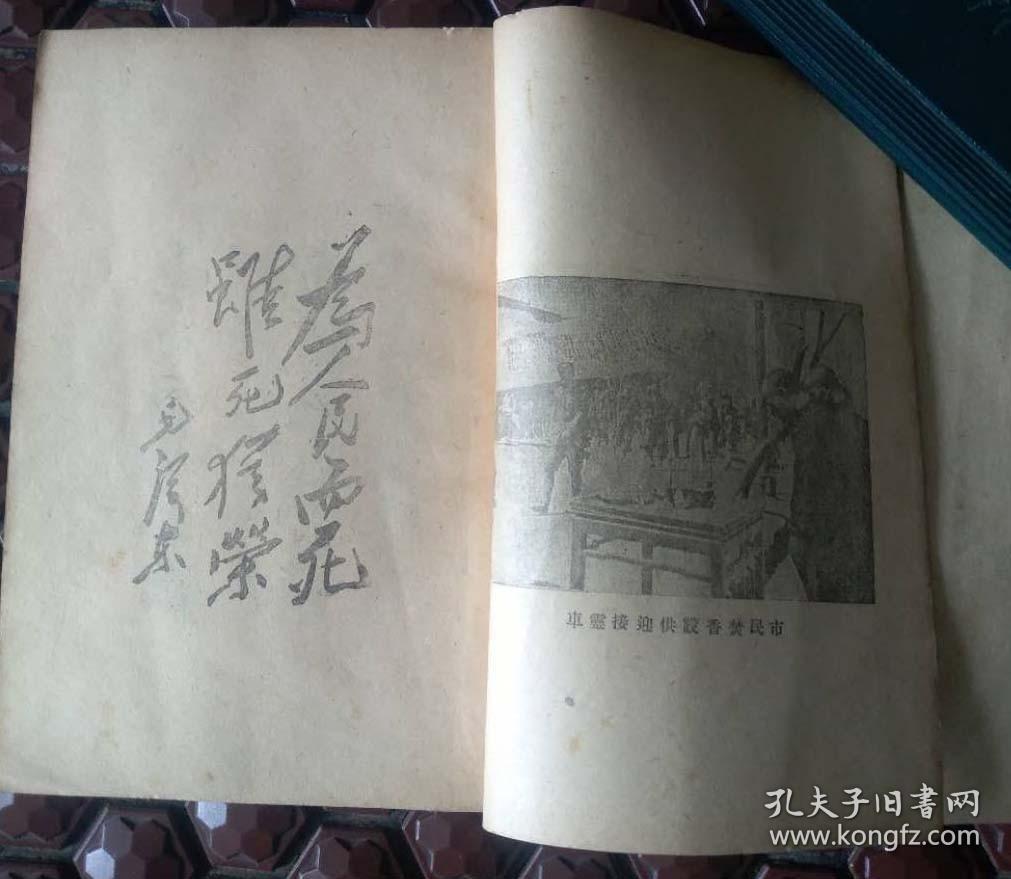 為人民而死
雖死猶榮
毛澤東
車靈接迎供設香焚民市
孔夫子旧書网
www.kongfz.com